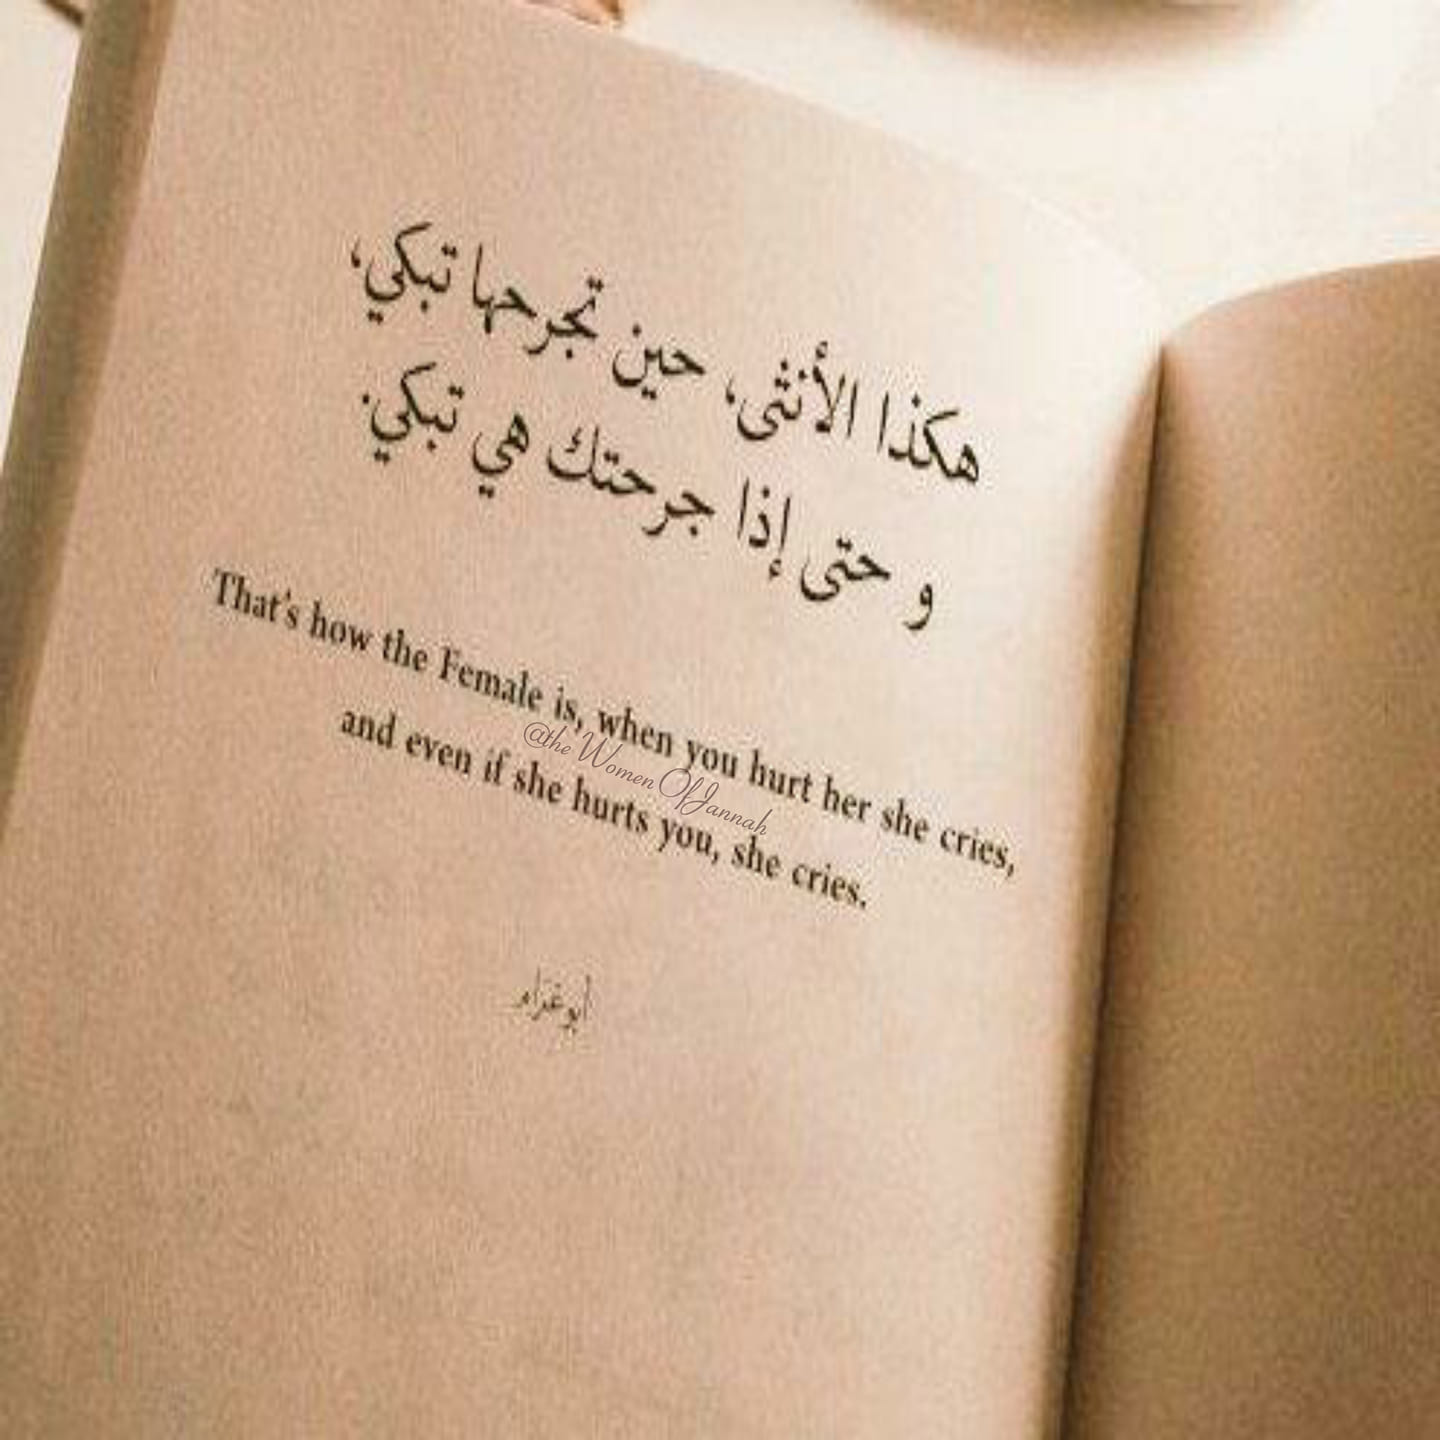 هكذا الأنثى، حين تجرحها تبكي،
و حتى إذا جرحتك هي تبكي.
That's how the Female is, when you hurt her she cries,
and even if she hurts you, she cries.
@theWomenOfJannah
أبو غرام